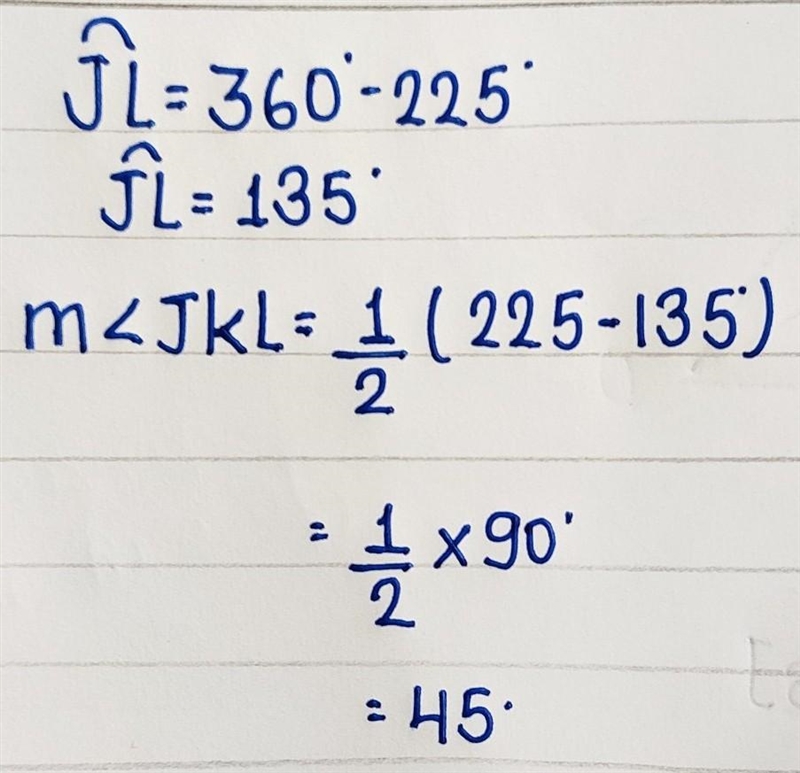 ⌢JL = 360° - 225°
⌢JL = 135°
m < JkL = 1/2 ( 225 - 135° )
= 1/2 × 90°
= 45°